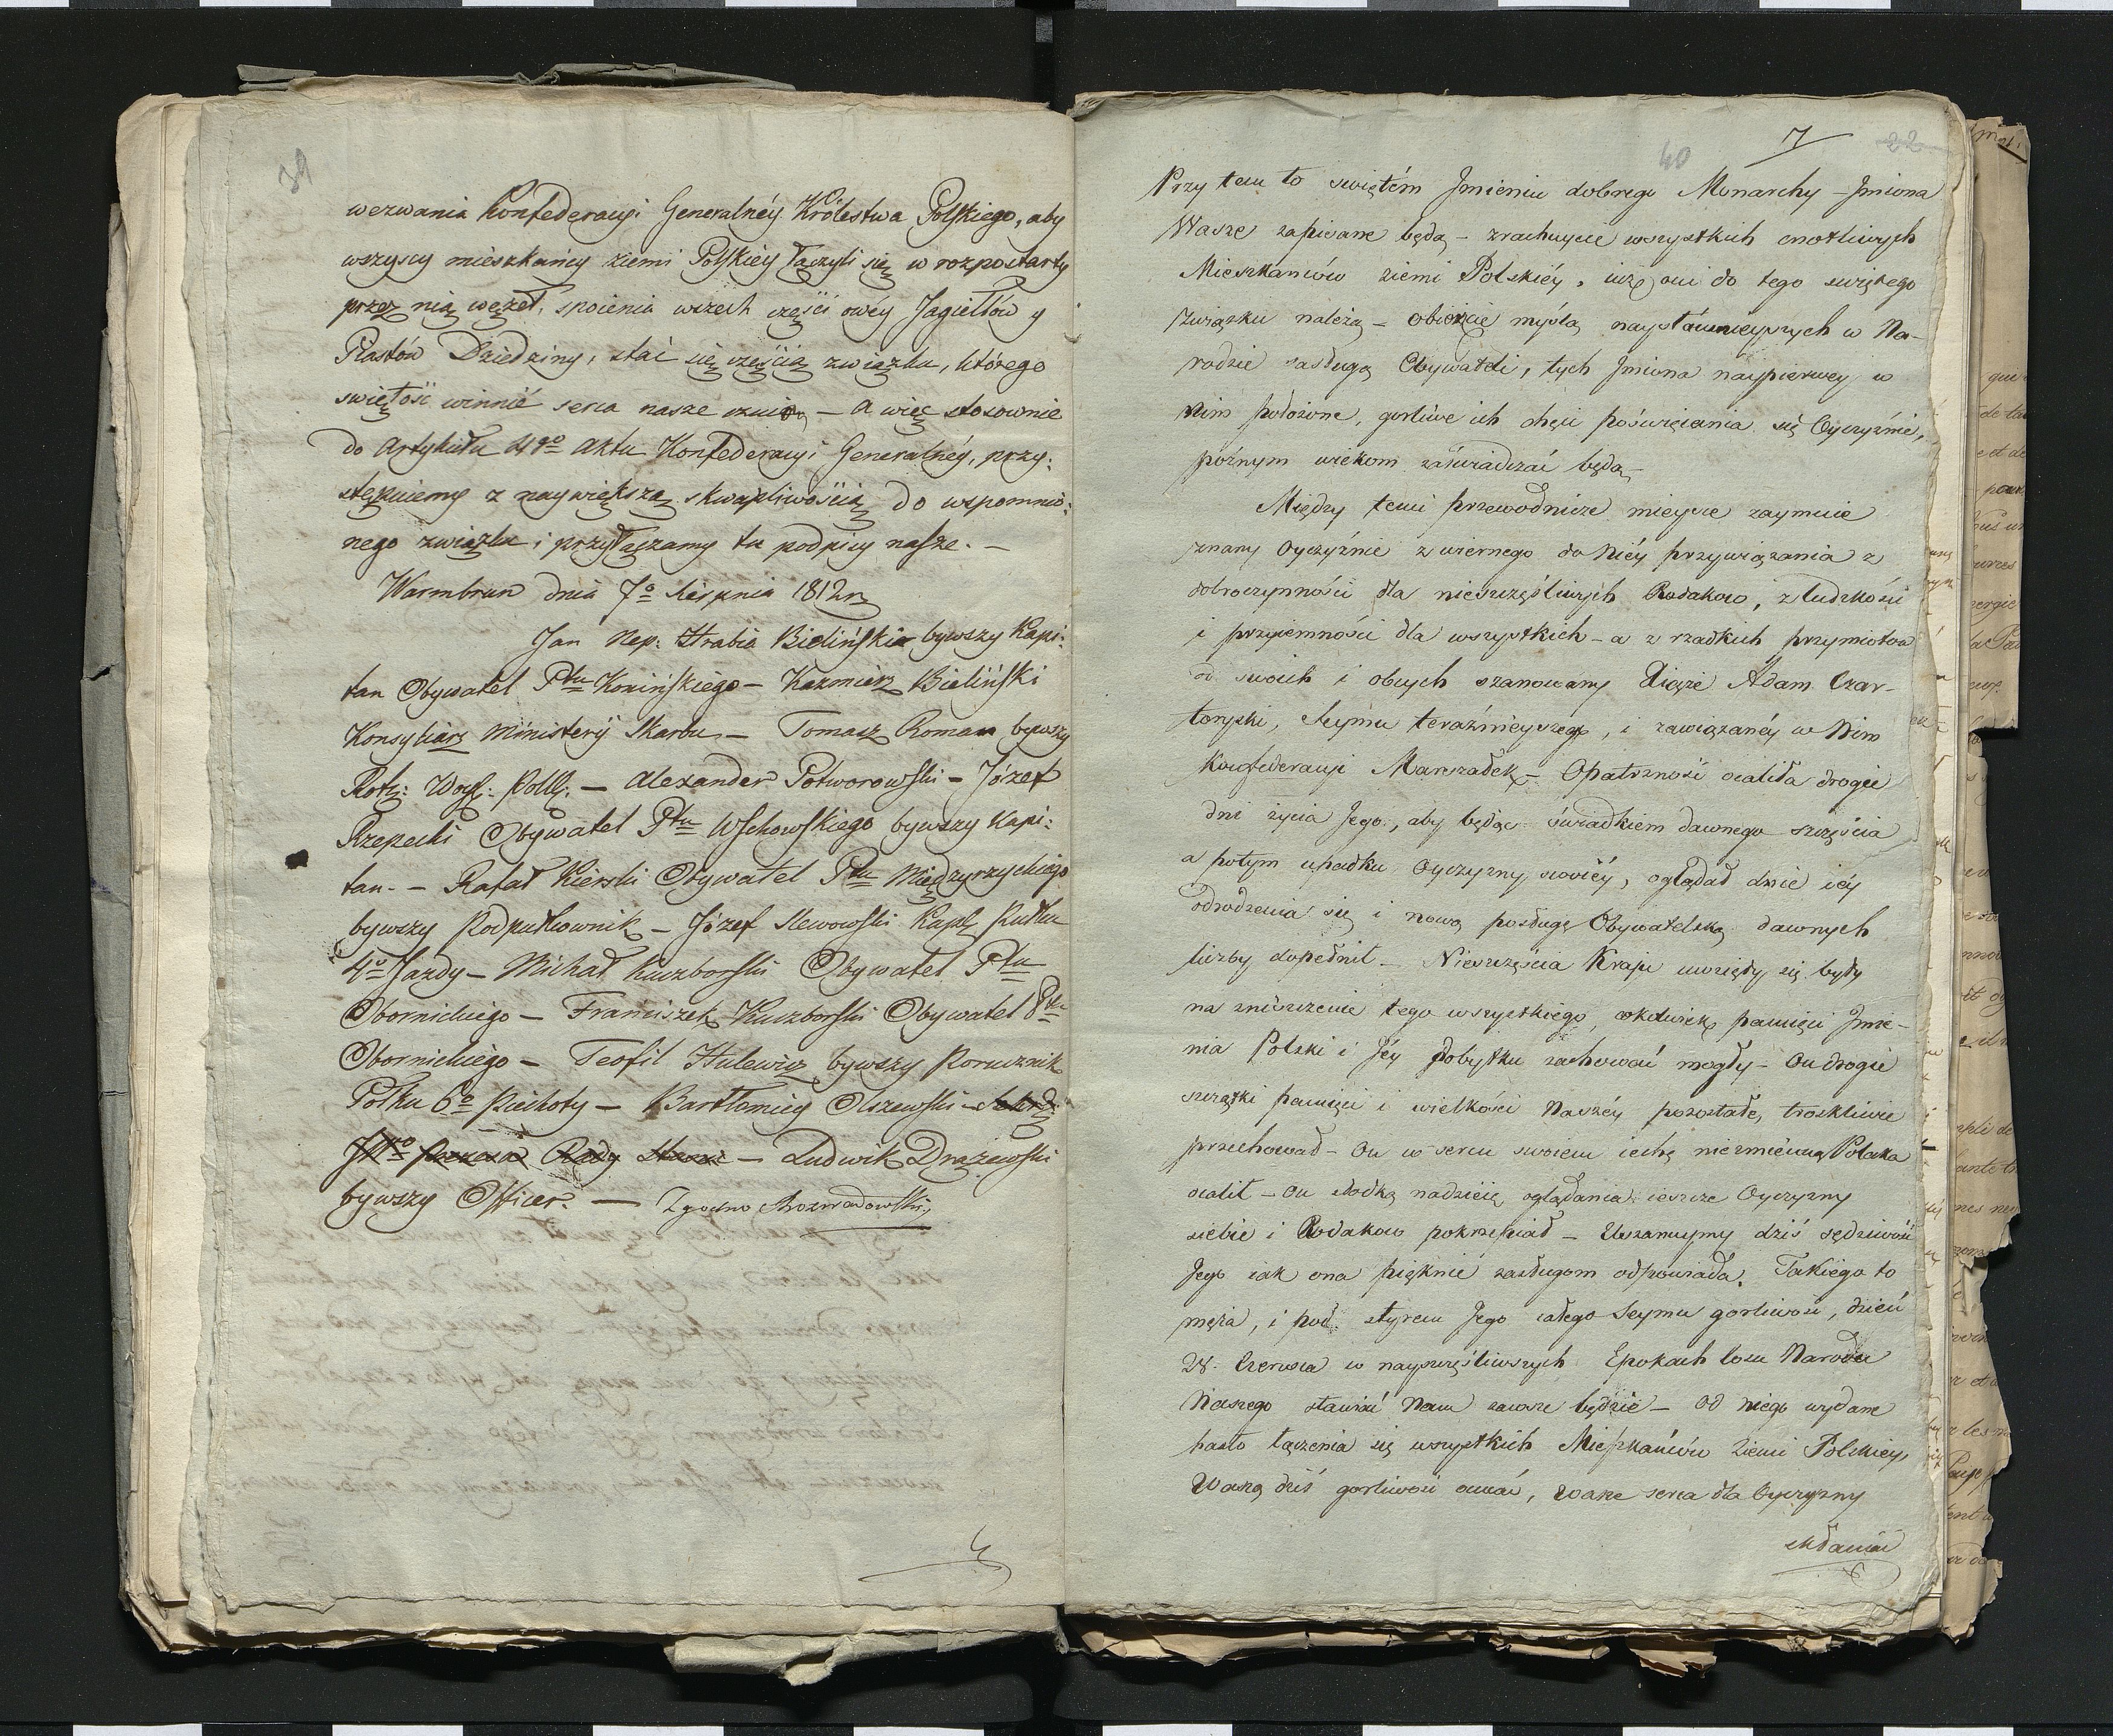 39
wezwania Konfederacyi Generalnéy Królestwa Polskiego, aby
wszyscy mieszkańcy ziemi Polskiéy łączyli się w rozpostarty
przez nią węzeł, spoienia wszech części owéy Jagiełłów y
Piastów Dziedziny, stać się częścią związku, którego
swiętość winnić serca nasze — A więc stosownie
do Artykułu 4go Aktu Konfederacyi Generalnéy, przy:
stępuiemy z naywiększą skwapliwością do wspomnio:
nego związku i przyłączamy tu podpisy nasze. —
Warmbrun dnia 7o Sierpnia 1812r
Jan Nep: Hrabia Bieliński bywszy Kapi:
tan Obywatel Ptu Konińskiego — Kazmierz Bieliński
Konsyliarz Ministeryi Skarbu — Tomasz Roman bywszy
Rotm: Woys: Polls: — Alexander Potworowski — Józef
Rzepecki Obywatel Ptu Wschowskiego bywszy Kapi:
tan. — Rafał Kierski Obywatel Ptu Międzyrzyckiego
bywszy Podpułkownik — Józef Kapt: Pułku
4o Jazdy — Michał Kuczborski Obywatel Ptu
Obornickiego — Franciszek Kuczborski Obywatel Ptu
Obornickiego — Teofil Hulewicz bywszy Porucznik
Połku 6o Piechoty — Bartłomiey Olszewski
Rady — Ludwik Drążewski
bywszy Officer. — Zgodno Rozwadowski
40 7 22
Przy tem to swiętém Jmieniu dobrego Monarchy — Jmiona
Wasze zapisane będą — zrachuycie wszystkich cnotliwych
Mieszkanców ziemi Polskiéy, iuż oni do tego swiętego
związku należą — obierzcie myślą naysławnieyszych w Na-
rodzie zasługą Obywateli, tych Jmiona naypierwey w
Nim położone, gorliwe ich chęci poświęcenia się Oyczyźnie,
poźnym wiekom zaświadczać będą —
Między temi przewodnicze mieysce zaymuie
znany Oyczyźnie z wiernego do Niéy przywiązania z
dobroczynności dla nieszczęśliwych Rodakow, z ludzkości
i przyiemności dla wszystkich — a z rzadkich przymiotow
od swoich i obcych szanowany Xiąże Adam Czar-
toryski, Seymu teraźnieyszego, i zawiązanéy w Nim
Konfederacyi Marszałek — Opatrzność ocaliła drogie
dni życia Jego, aby będąc świadkiem dawnego szczęścia
a potym upadku Oyczyzny swoiéy, oglądał dnie iéy
odrodzenia się i nową posługą Obywatelską dawnych
liczby dopełnił — Nieszczęścia Kraju uwzięły się były
na zniszczenie tego wszystkiego, cokolwiek pamięci Jmie-
nia Polski i Jéy dobytku zachować mogły — On drogie
szczątki pamięci i wielkości Naszéy pozostałe, troskliwie
przechował — On w sercu swoiem cechę niezmienną Polaka
ocalił — On słodką nadzieią oglądania ieszcze Oyczyzny
siebie i Rodakow pokrzepiał — Uszanuymy dziś sędziwość
Jego iak ona pięknie zasługom odpowiada. Takiego to
męża, i pod styrem Jego całego Seymu gorliwość, dzień
28. Czerwca w nayszczęśliwszych Epokach losu Narodu
Naszego stawiać Nam zawsze będzie — Od niego wydane
hasło łączenia się wszystkich Mieszkańców Ziemi Polskiey,
Waszą dziś gorliwość , Wasze serca dla Oyczyzny
skłaniać